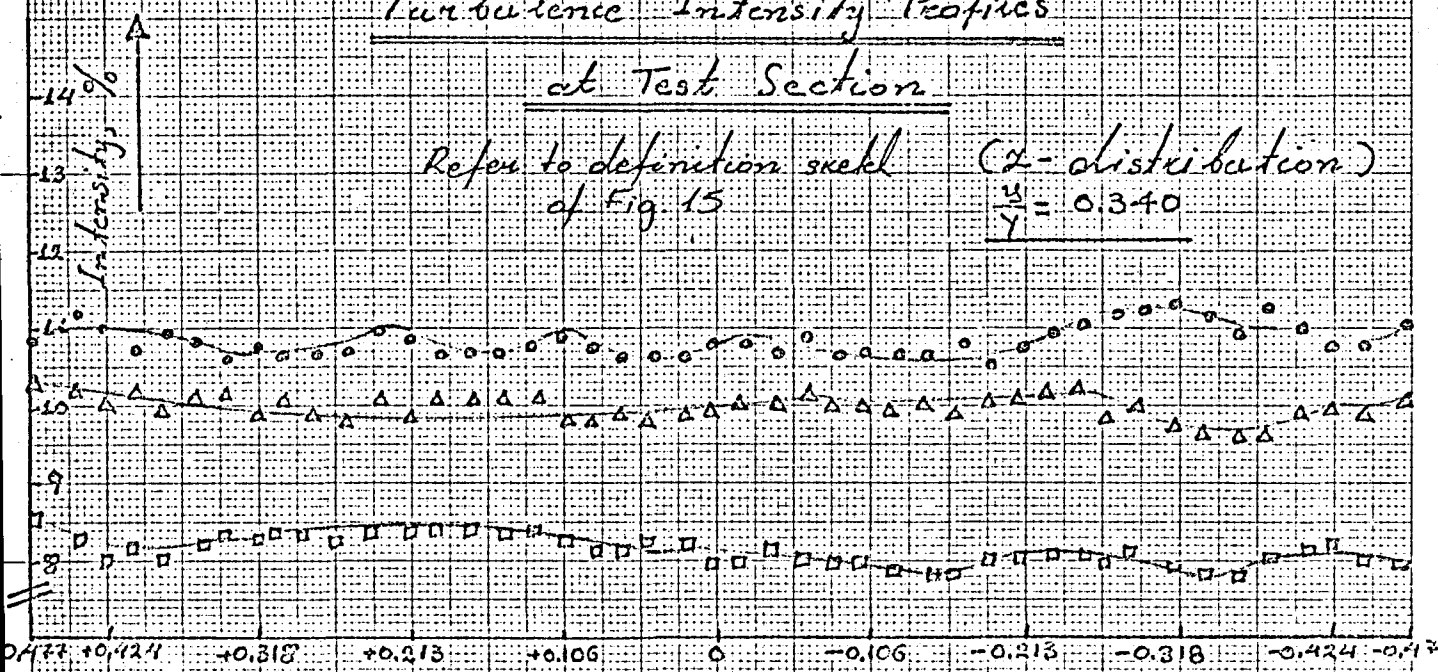 Turbulence Intensity Profiles
at Test Section
Refer to definition sketch
of Fig. 15
(z-distribution)
y/Y = 0.340
Intensity, %
14
13
12
11
10
9
8
0.477 +0.424 +0.318 +0.213 +0.106 0 -0.106 -0.213 -0.318 -0.424 -0.47